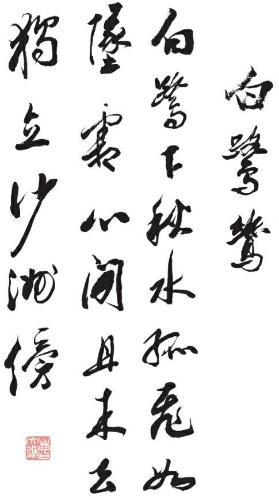 白鷺鷥
白鷺下秋水孤飛如
墜霜心閒且未去
獨立沙洲傍